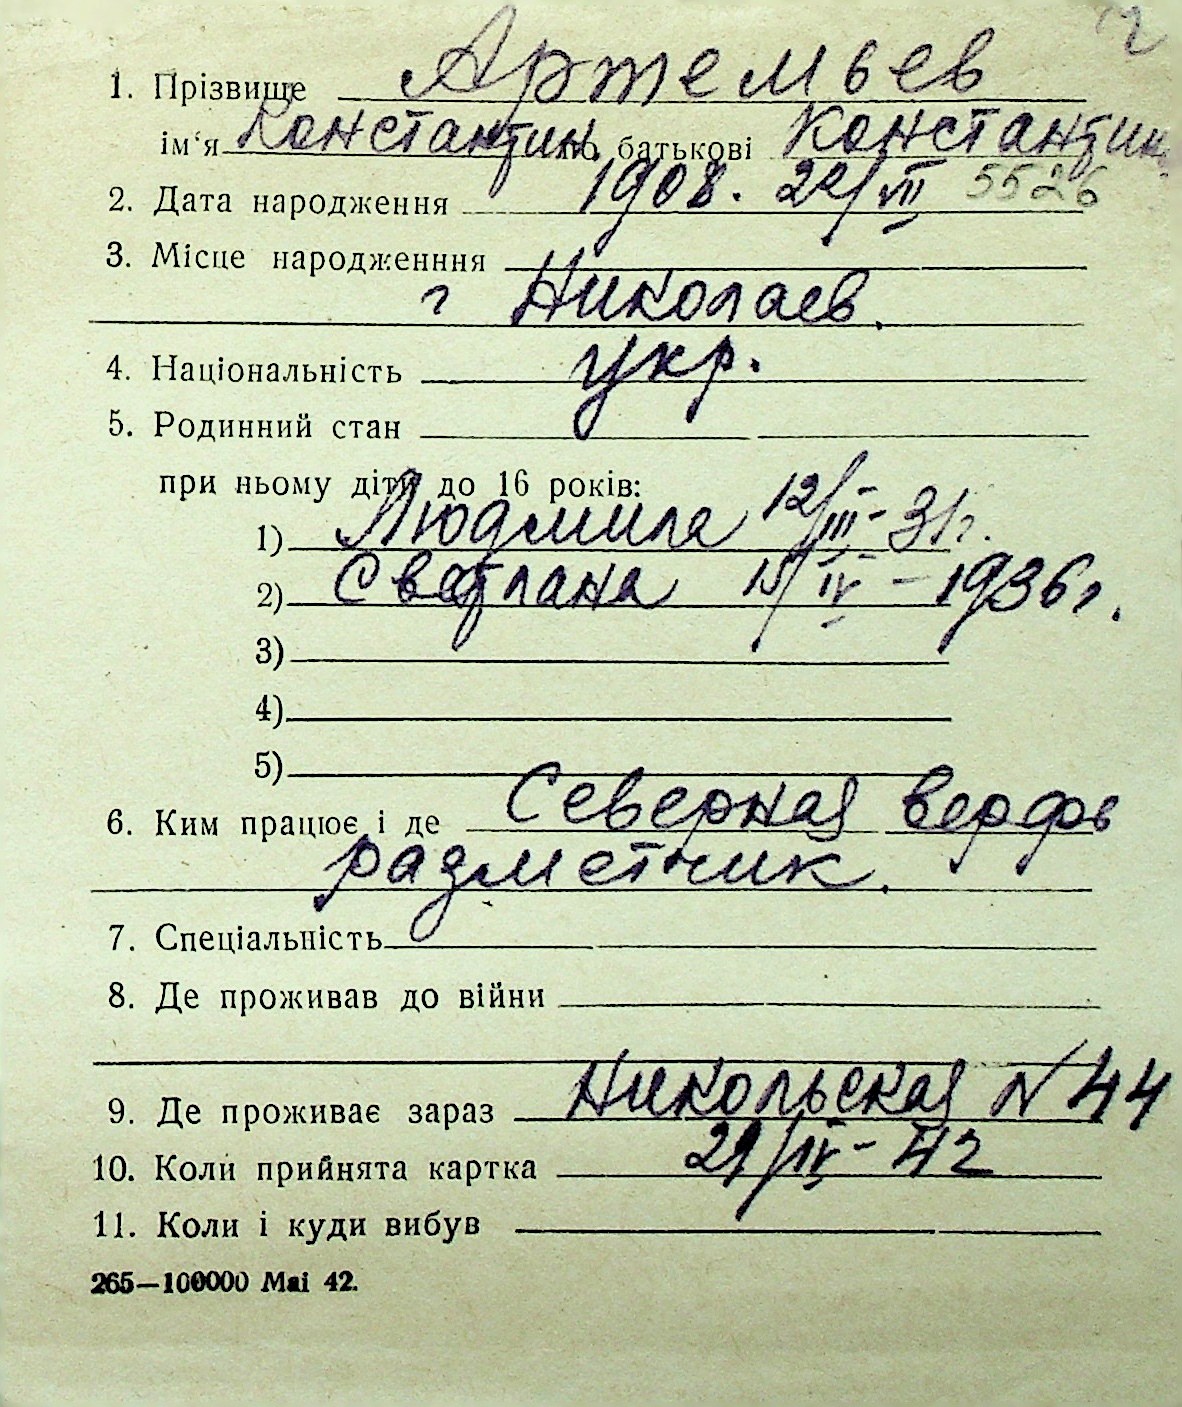 1. Прізвище Артемьев
ім'я Константин. по батькові Константин.
2. Дата народження 1908. 22/VII 5526
3. Місце народженння
г Николаев.
4. Національність укр.
5. Родинний стан
при ньому діти до 16 років:
1) Людмила 12/III-31г.
2) Светлана 15/IV-1936г.
3)
4)
5)
6. Ким працює і де Северная верфь
разметчик.
7. Спеціальність
8. Де проживав до війни
9. Де проживає зараз Никольская N 44
10. Коли прийнята картка 29/IV-42
11. Коли і куди вибув
265—100000 Mai 42.